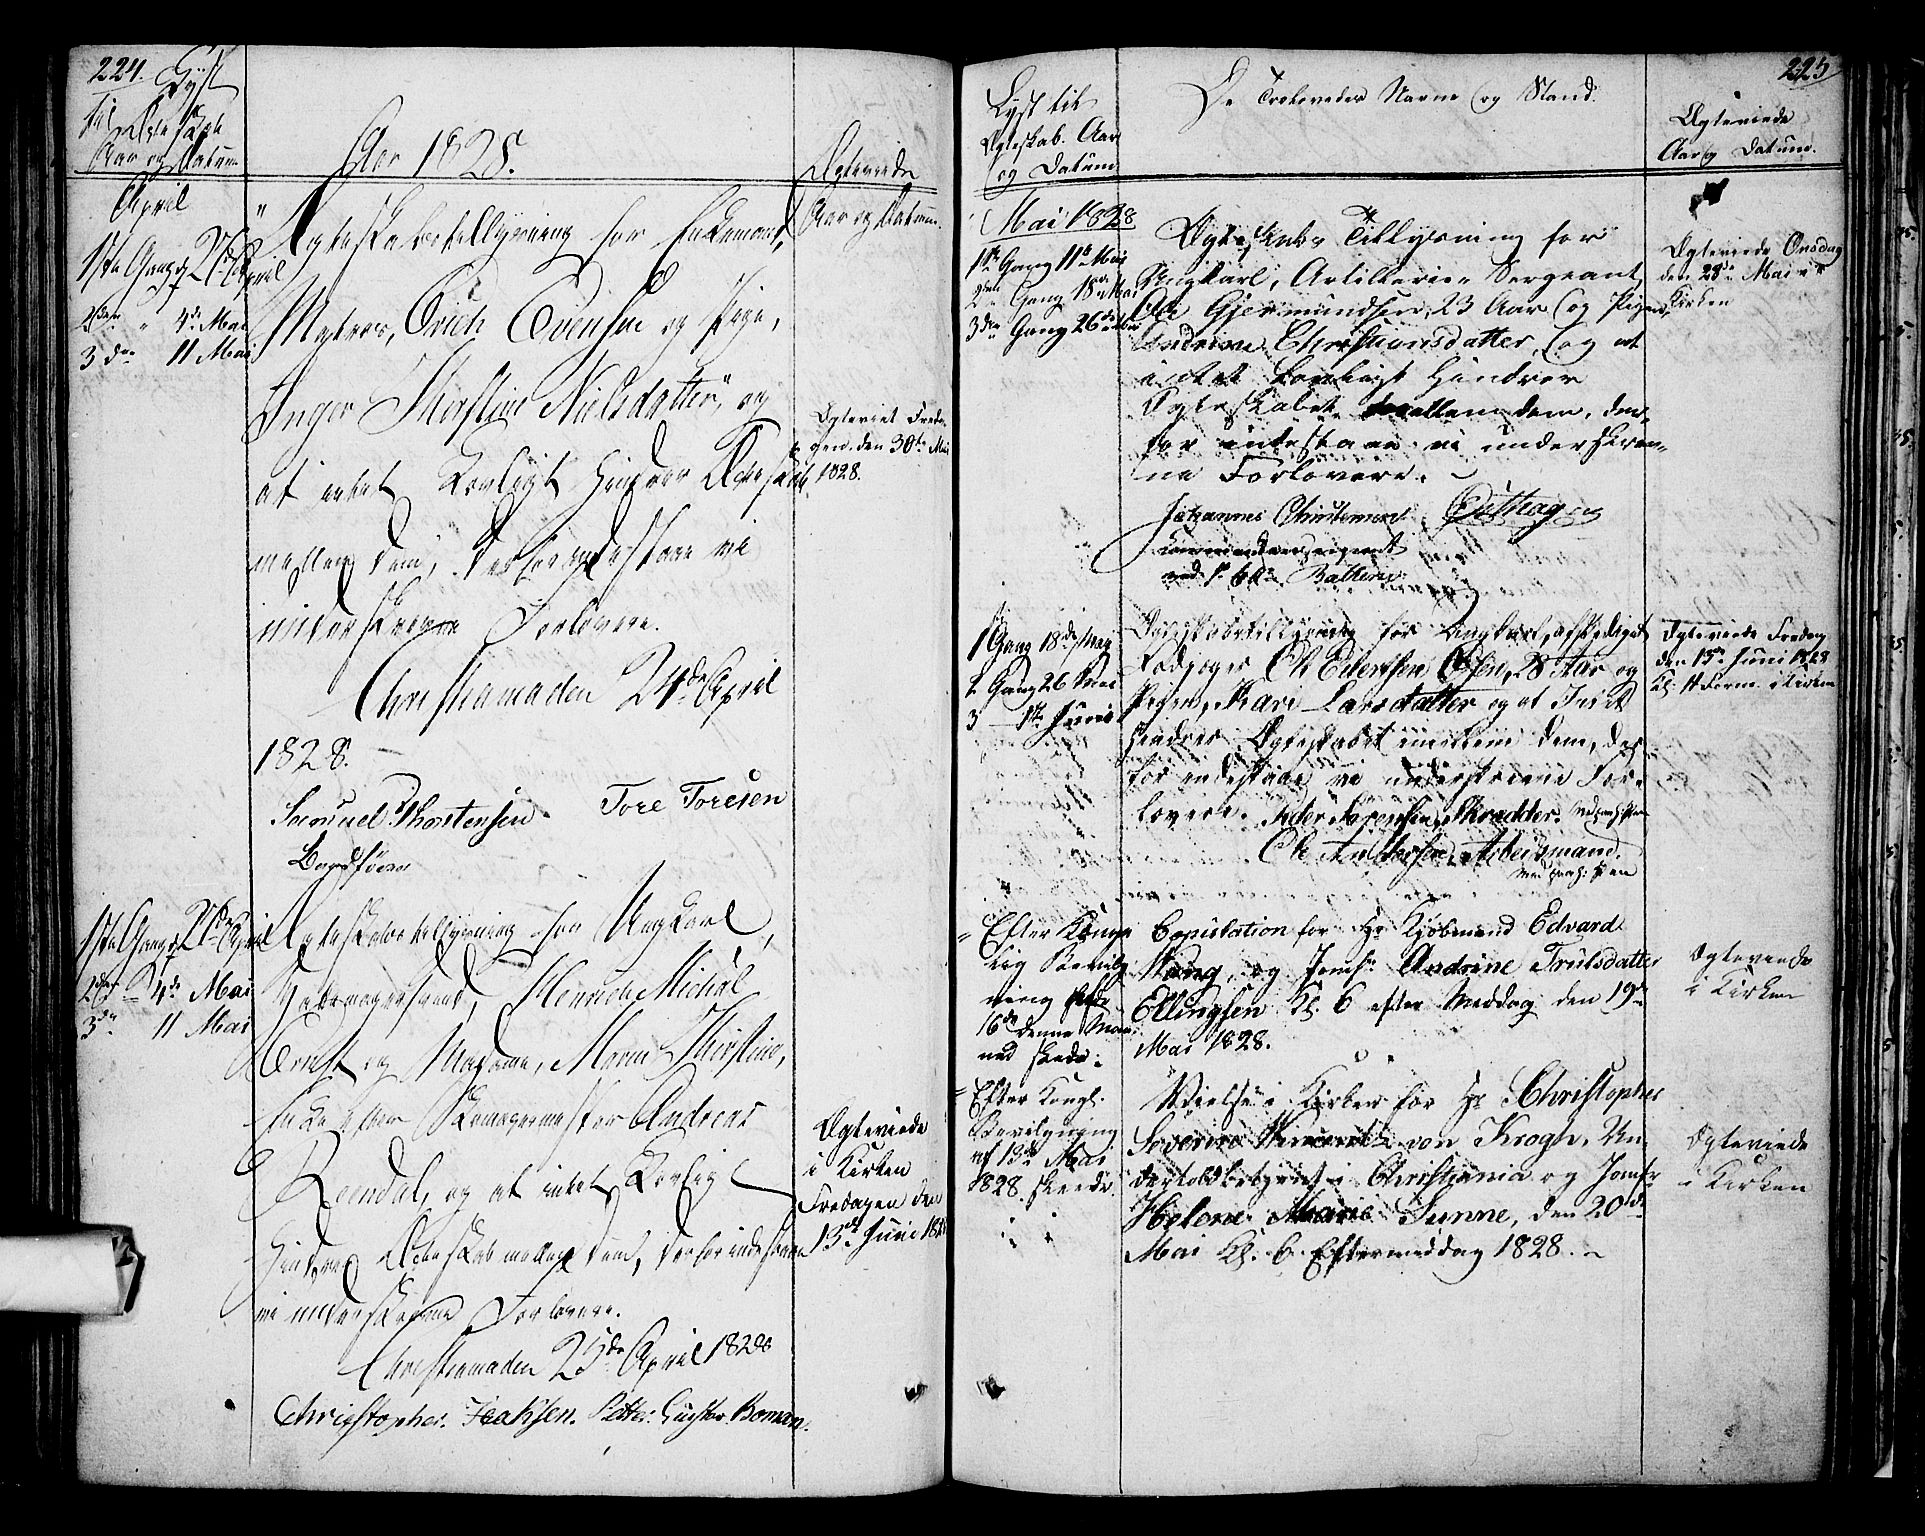 224.
Lyst
til
Ægteskab
Aar og Datum
Aar 1828.
Ægteviede
Aar og Datum.
April
1ste Gang d 27de April
2den " 4de Mai
3die 11 Mai
Ægteskabstillysning for Enkemand,
Matros, Evensen og Pige,
Inger Kirstine Nielsdatter, og
at intet Lovligt hindrer Ægteskab
mellem dem, derfor indestaae vi
underskrevne Forlovere.
Christiania den 24de April
1828.
Samuel Thorstensen. Tore Toresen
Ægteviet Freda-
gen den 30te Mai
1828.
1ste Gang d 27de April
2den 4de Mai
3die 11 Mai
Ægteskabstillysning for Ungkarl,
Hennich Michál
Ernst og Madame, Maren Kirstine,
Enke efter Skomagermester Andreas
Reendal, og at intet Lovligt
hindrer Ægteskab mellem dem, derfor indestaae
vi underskrevne Forlovere.
Christiania den 25de April 1828
Christopher Isaksen. Petter Gustav Boman.
Ægteviede
i Kirken
Fredagen den
13de Juni 1828
225
Lyst til
Ægteskab. Aar
og Datum
De Trolovedes Navne og Stand.
Ægteviede
Aar og Datum.
Mai 1828
1ste Gang 11te Mai
2den Gang 18de Mai
3die Gang 26de Mai
Ægteskabs Tillysning for
Ungkarl, Artillerie Sergeant
Ole Gjermundsen, 23 Aar og Pigen,
Andrine Christiansdatter, og at
intet Lovligt hindrer
Ægteskabet mellem dem, der-
for indestaae vi underskrev-
ne Forlovere.
Johannes Christensen
Ægteviede Onsdag
den 28de Mai i
Kirken
1 Gang 18de May
2 Gang 26 Mai
3 — 1ste Junii
Ægteskabstillysning for Ungkarl, afskediget
Ole Eilertsen Olsen, 28 Aar og
Pigen, Kari Larsdatter og at Intet
hindrer Ægteskabet imellem dem, der-
for indestaae vi underskrevne For-
lovere. Peder Sørensen Skrædder.
Ole Andersen, Arbeidsmand.
med ført Pen
Ægteviede Fredag
den 13de Juni 1828
i Kirken
Efter Konge
lig Bevilg-
ning
16de denne Maa-
ned skede.
Copulation for Hr Kjøbmand Edvard
Stang, og Jomfr Andrine Trulsdatter
Ellingsen Kl. 6 efter Middag den 19de
Mai 1828.
Ægteviede
i Kirken
Efter Kongl.
Bevilgning
af 13de Mai
1828 skeede.
Vielse i Kirken for Hr Christopher
Severin Vincent von Krogh, Un-
dertoldbetjent i Christiania og Jomfr
Helene Marie Sunne, den 20de
Mai Kl. 6 Eftermiddag 1828.
Ægteviede
i Kirken